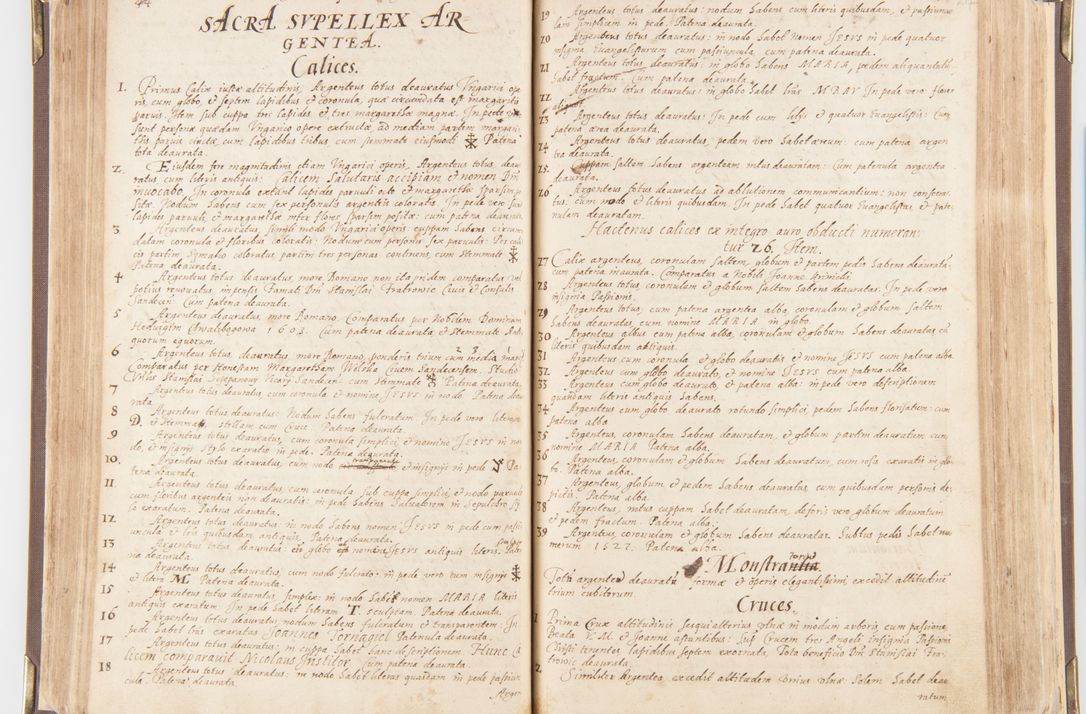 SACRA SVPELLEX AR
GENTEA.
Calices.
1. Primus Calix iustæ altitudinis, Argenteus totus deauratus Vngarici ope
ris, cum globo, et septem lapidibus et coronula, quæ circumdata est margaritis
paruis. Item sub cuppa tres lapides et tres margarethæ magnæ. In pede
sunt personæ quædam Vngarico opere extructæ, ad mediam partem margari
this paruis cinctæ, cum lapidibus tribus, cum stemmate eiusmodi Patena
tota deaurata.
2. Eiusdem fere magnitudinis etiam Vngarici operis, Argenteus totus, deau
ratus cum literis antiquis: Calicem Salutaris accipiam et nomen Dni
invocabo. In coronula extant lapides paruuli octo et margarethæ sparsim po
sitæ. Nodum habens cum sex personulis argenteis coloratis. In pede vero sunt
lapides paruuli, et margarethæ inter flores sparsim positæ: cum patena deaurata.
3. Argenteus deauratus, simili modo Vngarici operis, cuppam habens circum
datam coronula et floribus coloratis: Nodum cum personis sex paruulis: Pes cali
cis partim symalio coloratus, partim tres personas continens, cum stemmate
Patena deaurata.
4 Argenteus totus deauratus, more Romano non ita pridem comparatus, vel
potius renouatus, impensis Famati Dni Stanislai Fratronic Ciuis et Consulis
Sandecen: Cum patena deaurata.
5 Argenteus deauratus, more Romano. Comparatus per Nobilem Dominam
Hedvigim Chwalibogowa 1603. Cum patena deaurata et Stemmate Anti
quorum equorum.
6 Argenteus totus, deauratus, more Romano, ponderis trium cum media marc
Comparatus per Honestam Margaretham Wilczka Ciuem Sandecensem. Studio
Cniles Stanislai Szczepanowy Vicarij Sandecen: cum stemmate Patena deaurata.
7 Argenteus totus deauratus, cum coronula et nomine JESVS in nodo. Patena deau
rata.
8 Argenteus totus deauratus: Nodum habens fulcratum. In pede vero literam
D. et Stemma, stellam cum Cruce. Patena deaurata.
9 Argenteus totus deauratus, cum coronula simplici, et nomine JESVS in no
do, et insignijs stylo exaratis in pede. Patena deaurata.
10. Argenteus totus deauratus, cum nodo transparenti et insignijs in pede Pa
tena deaurata.
11. Argenteus totus deauratus, cum coronula sub cuppa simplici, et nodo paruulo
cum floribus argenteis non deauratis: in pede habens Saluatorem in sepulchro sty
lo exaratum. Patena deaurata.
12. Argenteus totus deauratus: in nodo habens nomen JESVS in pede cum passi
uncula et lris quibusdam antiquis. Patena deaurata.
13 Argenteus totus deauratus: in globo est nomine JESVS antiquis literis. Pate
na deaurata.
14 Argenteus totus deauratus, cum nodo fulcrato: in pede vero cum insignijs
et litera M. Patena deaurata.
15 Argenteus totus deauratus, simplex: in nodo habet nomen MARIA literis
antiquis exaratum: In pede habet literam T. sculptam. Patena deaurata.
16 Argenteus totus deauratus, nodum habens fulcratum et transparentem: In
pede habet lris exaratas Joannes Tornagiel Patenula deaurata.
17 Argenteus totus deauratus: in cuppa habet hanc descriptionem. Hunc Ca
licem comparauit Nicolaus Institor. Cum patena deaurata.
18 Argenteus totus deauratus: in nodo habet literas quasdam in pede passiun
cula. Patena deaurata.
Argen
19 Argenteus totus deauratus: nodum habens cum literis quibusdam, et passiuncu
lam simplicem in pede. Patena deaurata.
20 Argenteus totus deauratus: in nodo habet nomen JESVS in pede quatuor
insignia Euangelistarum cum passiuncula, cum patena deaurata.
21 Argenteus totus, deauratus: in globo habens MARIA, pedem aliquantulu
habet fractum. Cum patena deaurata.
22 Argenteus totus deauratus: in globo habet lras MRAV In pede vero flores
aliquot
23 Argenteus totus deauratus: In pede cum lilijs et quatuor Euangelistis: Cum
patena ærea deaurata.
24 Argenteus totus deauratus, pedem vero habet æreum: cum patena argen
tea deaurata.
25. Cuppam saltem habens argenteam intus deauratam: Cum patenula argentea
deaurata.
26 Argenteus totus deauratus ad ablutionem communicantium: non consecra
tus: cum nodo et literis quibusdam. In pede habet quatuor Euangelistas, et pate
nulam deauratam.
Hactenus calices ex integro auro obducti numeran:
tur 26. Item.
27 Calix argenteus, coronulam saltem, globum et partem pedis habens deaurata:
cum patena inaurata. Comparatus a Nobili Joanne Primidi.
28 Argenteus totus, coronulam et globum saltem habens deauratas: In pede vero
insignia Passionis.
29 Argenteus totus, cum patena argentea alba, coronulam et globum saltem
habens deauratas, cum nomine MARIA in globo.
30 Argenteus albus cum patena alba, coronulam et globum habens deauratas cu
literis quibusdam antiquis.
31 Argenteus cum coronula et globo deauratis et nomine JESVS cum patena alba.
32. Argenteus cum globo deaurato, et nomine JESVS cum patena alba.
33 Argenteus cum globo deaurato, et patena alba: in pede vero descriptionem
quandam literis antiquis habens.
34 Argenteus cum globo deaurato rotundo simplici, pedem habens florisatum: cum
patena alba
35 Argenteus, coronulam habens deauratam, et globum partim deauratum cum
nomine MARIA Patena alba.
36 Argenteus, coronulam et globum habens deauratum, cum rosis exaratis in glo
bo. Patena alba.
37 Argenteus, globum et pedem habens deauratas, cum quibusdam personis de:
pictis. Patena alba.
38 Argenteus, intus cuppam habet deauratam, deforis vero globum deauratum
et pedem fractum. Patena alba.
39 Argenteus, coronulam et globum habens deauratas. Subtus pedis habet nu
merum 1527. Patena alba.
Monstrantia
Tota argentea deaurata formæ et operis elegantissimi excedit altitudine
trium cubitorum.
Cruces.
1 Prima Crux altitudinis sesquialterius vlnæ in modum arboris, cum passione
Beata V. M. et Joanne astantibus: Sup Crucem tres Angeli insignia Passionis
Christi tenentes, lapidibus septem exornata, Tota beneficio Dni Stanislai Fra:
tronic deaurata.
2 Similiter Argentea excedit altitudem vnius vlnæ: Solem habet deau
ratum